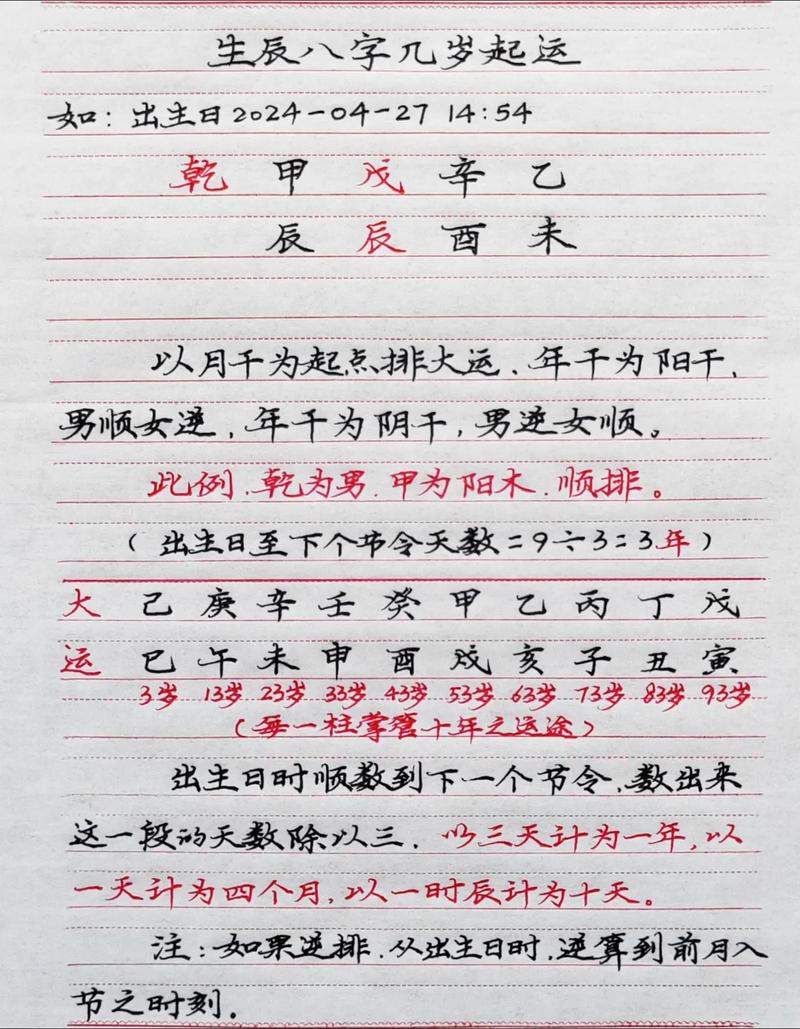 生辰八字几岁起运
如：出生日2024-04-27 14:54
乾 甲 戊 辛 乙
辰 辰 酉 未
以月干为起点排大运．年干为阳干，
男顺女逆，年干为阴干，男逆女顺。
此例．乾为男．甲为阳木．顺排。
（出生日至下个节令天数=9÷3=3年）
大 己 庚 辛 壬 癸 甲 乙 丙 丁 戊
运 巳 午 未 申 酉 戌 亥 子 丑 寅
3岁 13岁 23岁 33岁 43岁 53岁 63岁 73岁 83岁 93岁
（每一柱掌管十年之运途）
出生日时顺数到下一个节令，数出来
这一段的天数除以三．以三天计为一年，以
一天计为四个月，以一时辰计为十天。
注：如果逆排．从出生日时，逆算到前月入
节之时刻。